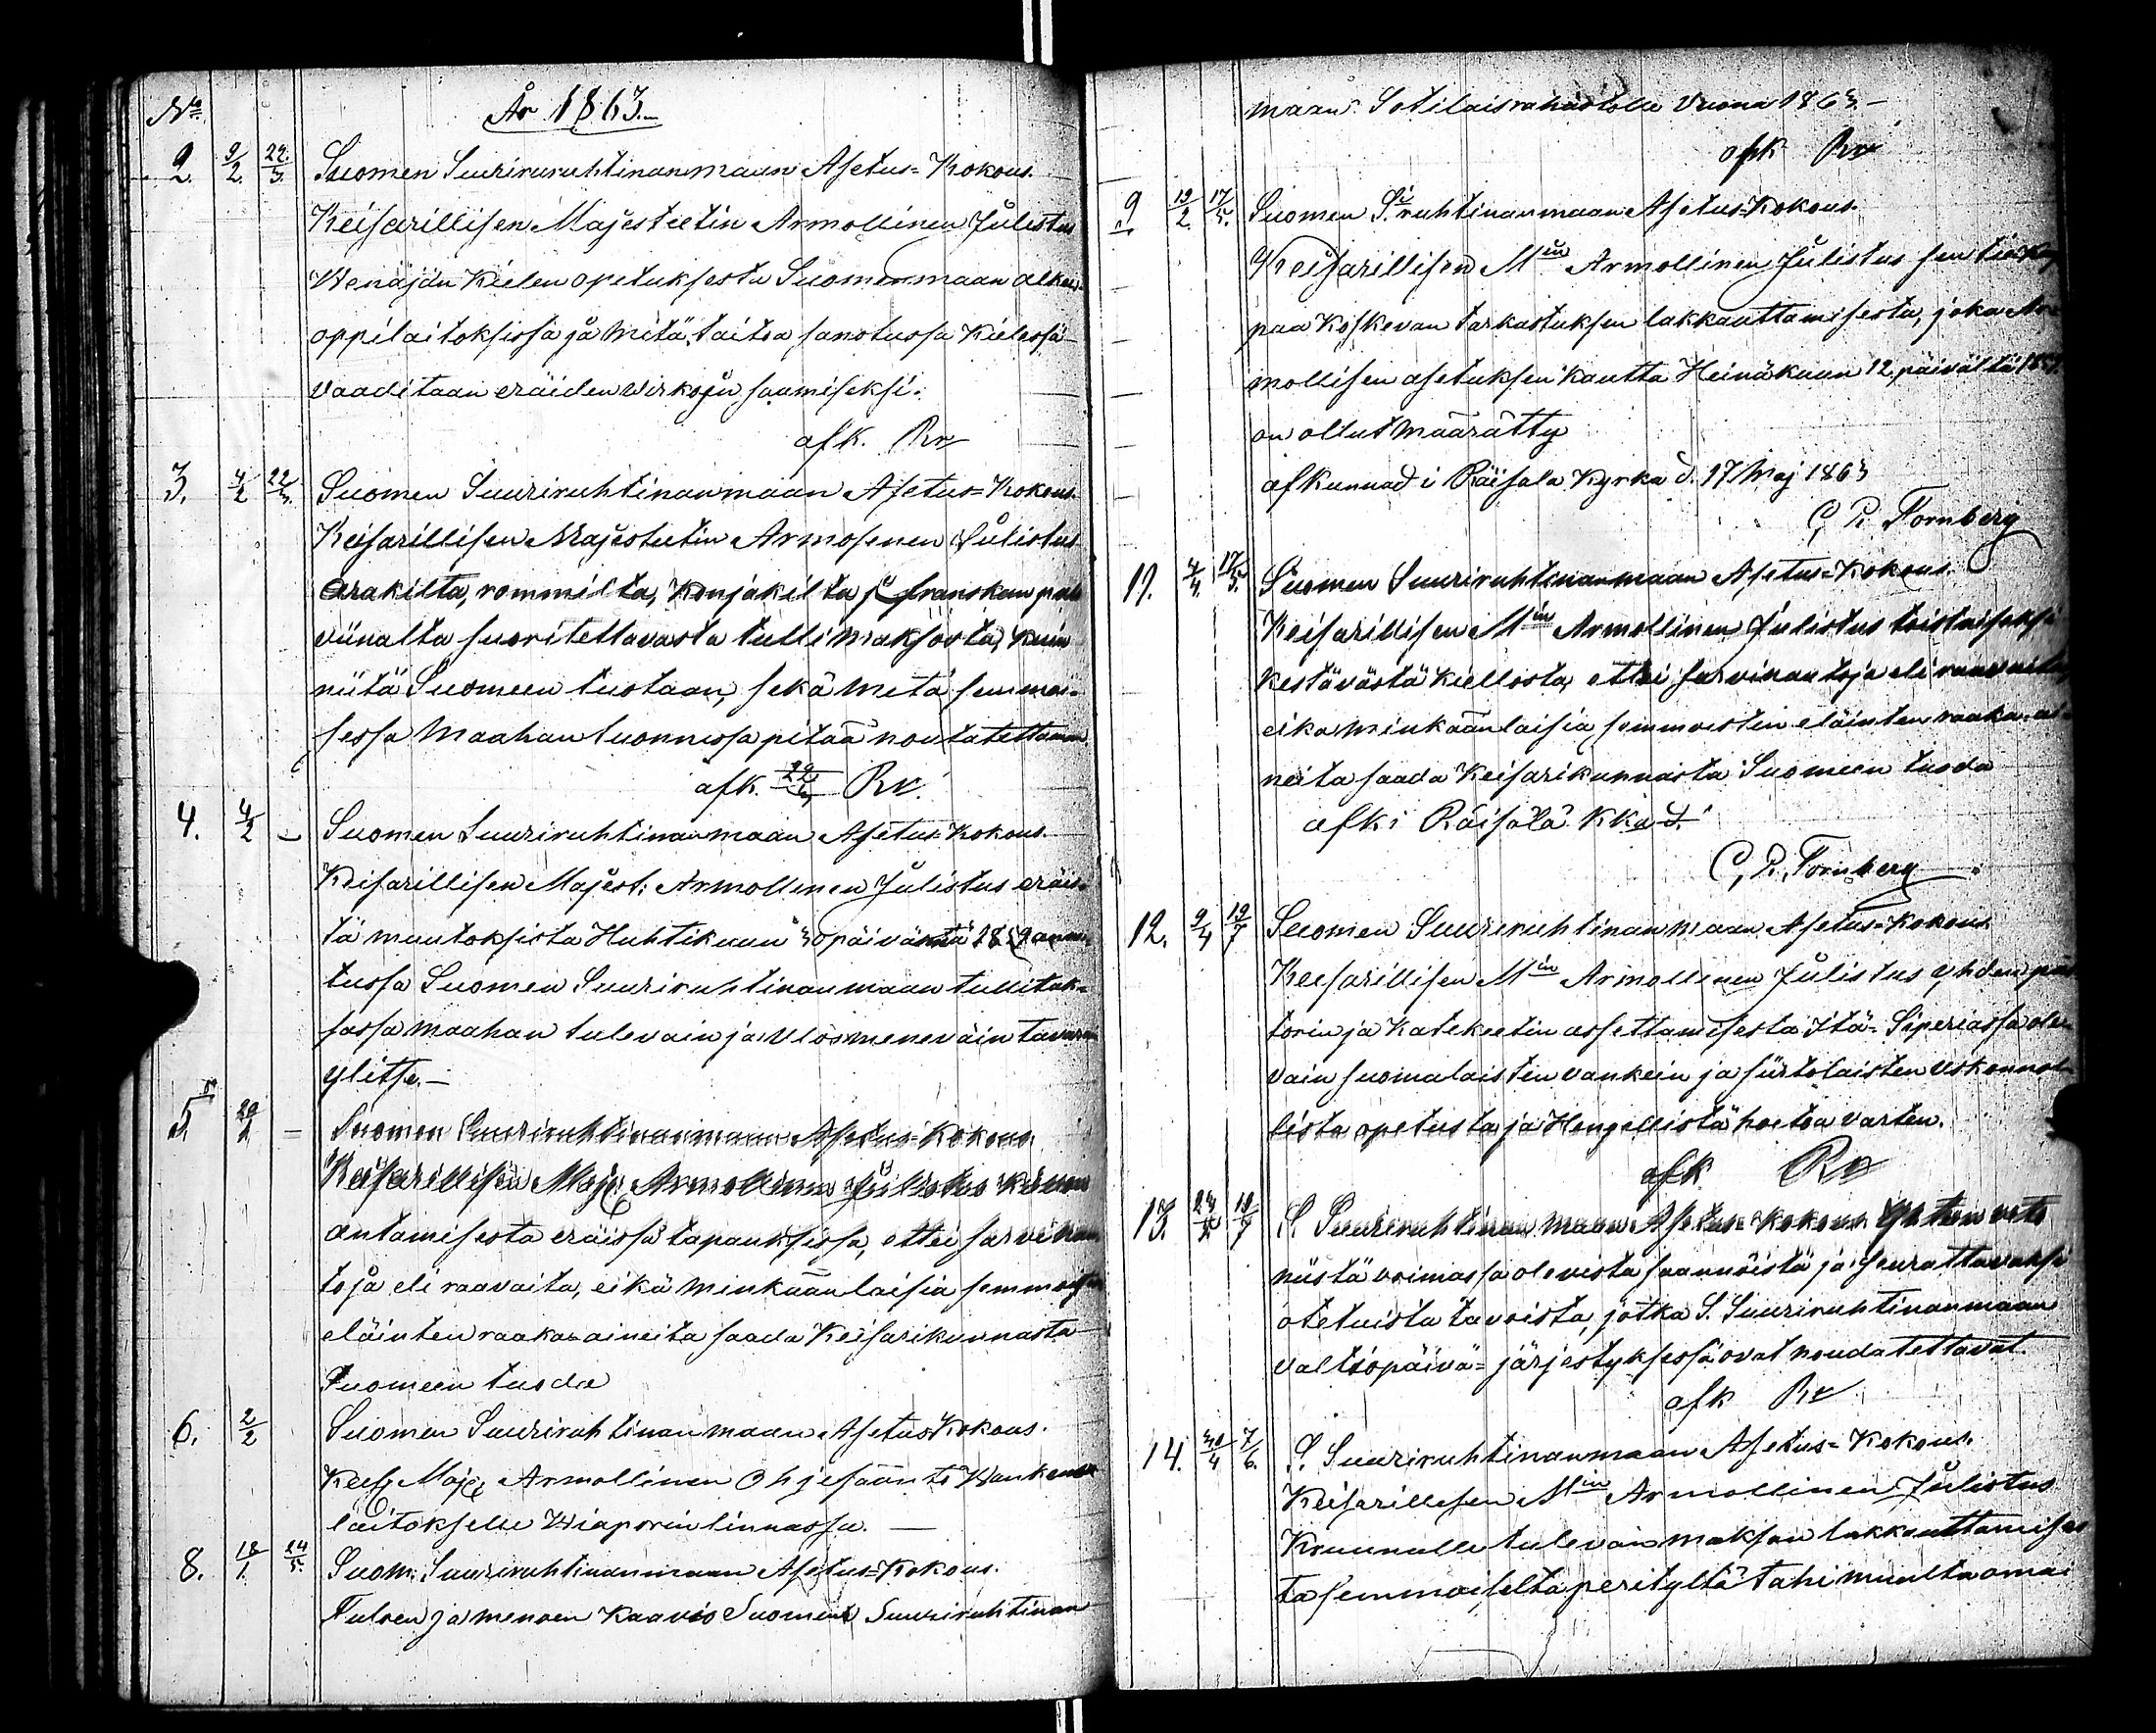 No. År 1863.
2. 9/2. 22/3. Suomen Suuriruruhtinanmaan Asetus=Kokous.
Keisarillisen Majesteetin Armollinen Julistus
Wenäjän Kielen opetuksesta Suomenmaan alkeis-
oppilaitoksissa ja mitä taitoa sanotussa Kielessä
vaaditaan eräiden wirkojen saamiseksi.
afk. Rr
3. 4/2 22/3. Suomen Suuriruhtinanmaan Asetus=Kokous.
Keisarillisen Majesteetin Armosenen Julistus
Arakilta, rommilta, Konjakilta ja franskan
viinalta suoritettavasta tullimaksosta, kuin
niitä Suomeen tuotaan, sekä mitä semmoi-
sessa maahan tuonnissa pitää noutatettaman
afk. 22/3 Rr.
4. 4/2 – Suomen Suuriruhtinanmaan Asetus=Kokous.
Keisarillisen Majest: Armollinen Julistus eräis-
tä muutoksista Huhtikuun 30 päivänä 1859 annetussa
tussa Suomen Suuriruhtinanmaan tullitak-
sassa maahan tulevain ja ulosmeneväin tavarain
ylitse.–
5. 29/1 = Suomen Suuriruhtinanmaan Asetus=Kokous.
Keisarillisen Maj: Armollinen Julistus
antamisesta eräissä tapauksissa, ettei sarvinau-
toja eli raavaita, eikä minkäänlaisia semmoisten
eläinten raaka=aineita saada Keisarikunnasta
Suomeen tuoda
6. 2/2 Suomen Suuriruhtinanmaan Asetus Kokous.
Keis Maj: Armollinen Ohjesääntö Wankeus
laitokselle Wiaporin linnassa. —
8. 18/1. 24/5. Suom: Suuriruhtinanmaan Asetus=Kokous.
Tuloen ja menoen Kaavio Suomen Suuriruhtinan
maan Sotilaisrahastolle Vuona 1863.–
afk Rr
9. 19/2. 17/5. Suomen S:ruhtinanmaan Asetus=Kokous.
Keisarillisen M:in Armollinen Julistus sen
paa Koskevan tarkastuksen lakkauttamisesta, joka Ar-
mollisen asetuksen kautta Heinäkuun 12. päivältä
on ollut määrätty
afkunnad i Räisälä Kyrka d. 17 Maj 1863
C. R. Fornberg
11. 4/4. 17/5. Suomen Suuriruhtinanmaan Asetus=Kokous.
Keisarillisen M:in Armollinen Julistus toistaiseksi
kestävästä kiellosta, ettei sarvinautoja eli raavaita,
eikä minkäänlaisia semmoisten eläinten raaka=ai-
neita saada Keisarikunnasta Suomeen tuoda
afk i Räisälä Kka d.
C. R. Fornberg
12. 9/4 19/7 Suomen Suuriruhtinanmaan Asetus=Kokous.
Keisarillisen M:in Armollinen Julistus yhden pas-
torin ja Katekeetin assettamisesta Itä=Siperiassa ole-
vain suomalaisten vankein ja siirtolaisten uskonnol-
lista opetusta ja Hengellistä hoitoa varten.
afk Rr
13. 19/7 S. Suuriruhtinanmaan Asetus Kokous Yhteen veto
niistä voimassa olevista säännöistä ja seurattavaksi
otetuista tavoista, jotka S. Suuriruhtinanmaan
valtiopäivä=järjestyksessä ovat noudatettavat.
afk Rr
14. 30/4 7/6. S. Suuriruhtinanmaan Asetus=Kokous.
Keisarillisen M:in Armollinen Julistus
Kruunulle tulevain maksun lakkauttamises
ta semmoiselta perityltä tahi muulta omai